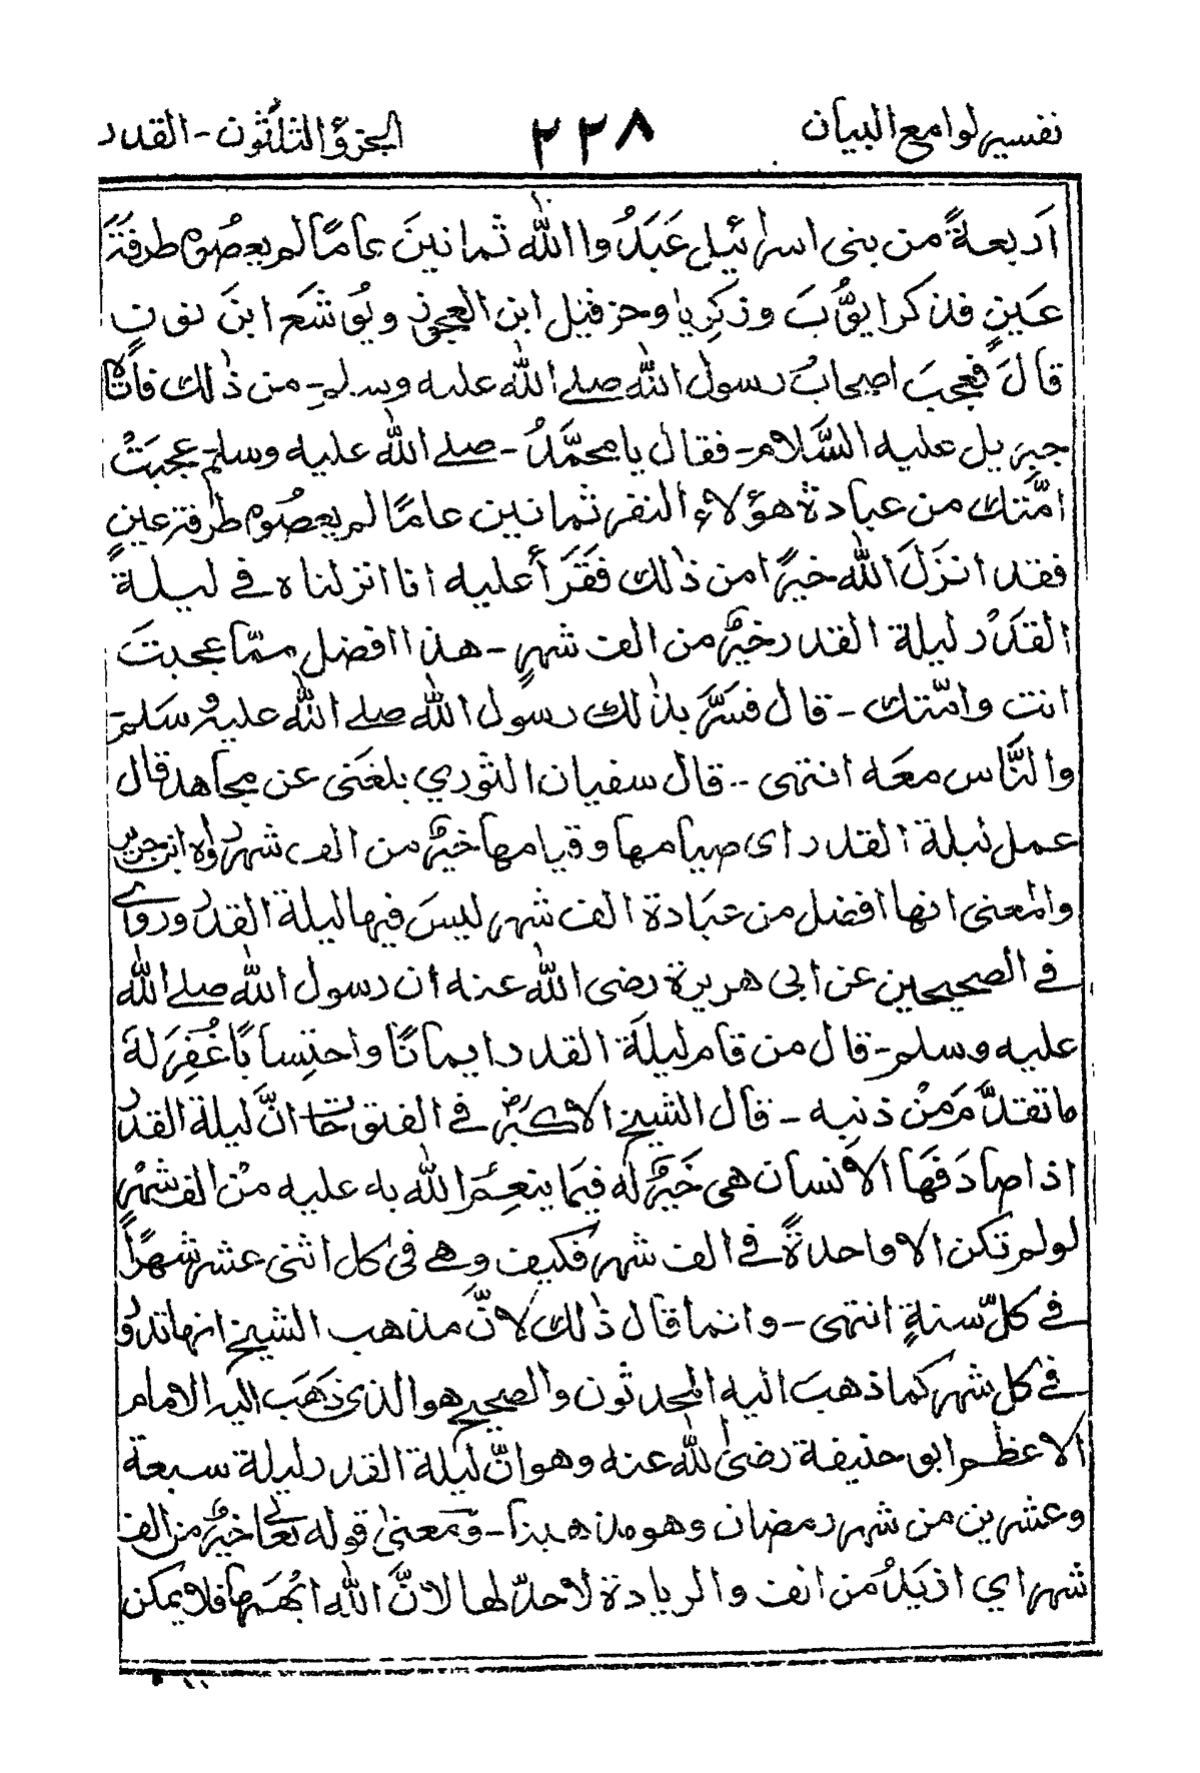 تفسير لوامع البيان ٢٢٨ الجزؤ الثلثون - القدر
اَربعةً من بنى اسرائيل عَبَدُوا اللّٰه ثمانينَ عامًا لم يعصُوه طرفةَ
عَينٍ فذكر ايوُّبَ وزكرِيا وحزقيل ابن العجوز ويُوشَعَ ابنَ نونٍ
قالَ فعجبَ اصحابُ رسول اللّٰه صلے اللّٰه عليه وسلم - من ذٰلك فاَتاهُ
جبريل عليه السَّلام - فقال يا محمَّدُ - صلے اللّٰه عليه وسلم عجبَتْ
امّتك من عبادة هؤلاء النفر ثمانين عامًا لم يعصُوه طرفة عينٍ
فقد انزَلَ اللّٰه خيرًا من ذٰلك فقَرَأ عليه انا انزلناه فے ليلةً
القدْر ليلة القدر خيرٌ من الف شهرٍ - هذا افضل ممّا عجبتَ
انت وامّتك - قال فسَرَّ بذٰلك رسول اللّٰه صلے اللّٰه عليه وسلم
والنَّاس معَه انتهى - قال سفيان الثوري بلغَنى عن مجاهد قال
عمل ليلة القدر اى صيامها وقيامها خيرٌ من الف شهر رواه ابن جرير
والمعنى انها افضل من عبَادة الف شهر ليسَ فيها ليلة القدر وروٰى
فے الصحيحين عن ابى هريرة رضى اللّٰه عنه ان رسول اللّٰه صلے اللّٰه
عليه وسلم - قال من قام ليلَة القدر ايمانًا واحتِسابًا غُفِرَ لهَ
ما تقدَّم مِنْ ذنبه - قال الشيخ الاكبَرؓ فے الفتوحات انَّ ليلة القدر
اذا صادَفَها الاِنسان هى خَيرٌ لهُ فيمَا ينعِمُ اللّٰه به عليه منْ الف شهْرٍ
لو لم تكن الا واحدةً فے الف شهر فكيف وهے فى كل اثنى عشر شهرًا
فے كلّ سنةٍ انتهى - وانما قال ذٰلك لانَّ مذهب الشيخ انها تدور
فے كل شهر كما ذهبَ اليه المحدثون والصحيح هو الذى ذهَبَ اليه الامام
الاعظم ابو حنيفة رضى اللّٰه عنه وهو انّ ليلة القدر ليلة سبعة
وعشرين من شهر رمضان وهو مذهبنا - ومَعنىٰ قوله تعالٰى خيرٌ من الف
شهر اي ازيَدُ من الف والزيادة لا حدّ لها لانَّ اللّٰه ابْهَمها فلا يمكن